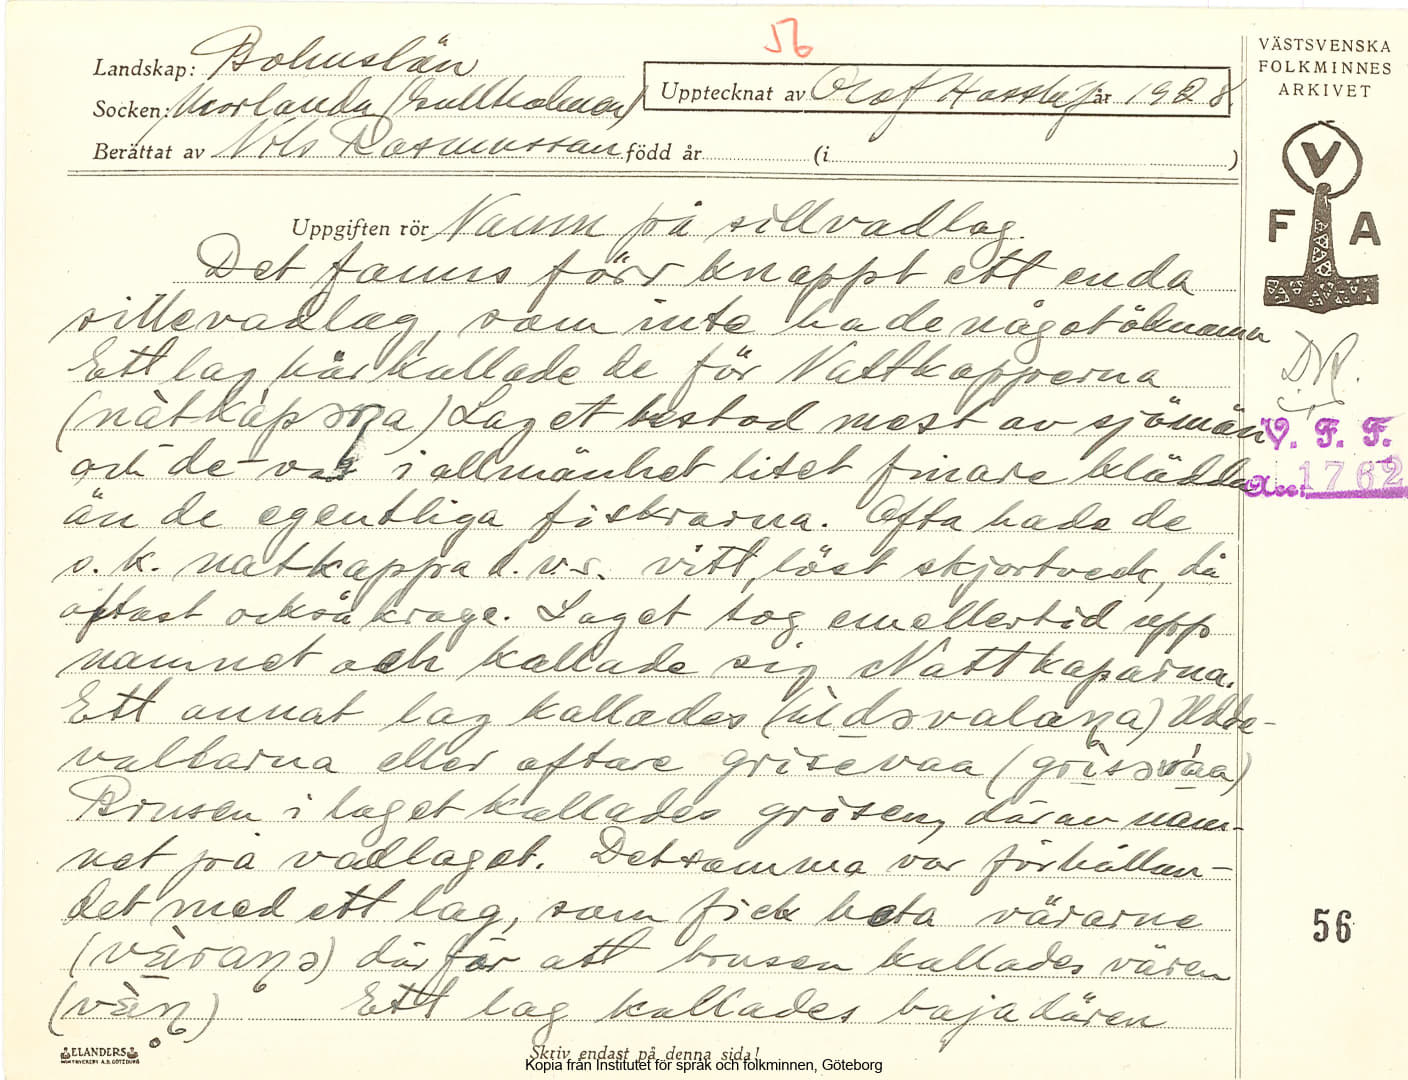 56
Landskap: Bohuslän
Socken: Morlanda (Gullholmen)
Upptecknat av Olof Hasslöf år 1928
Berättat av Nils Rasmussan född år (i )
VÄSTSVENSKA
FOLKMINNES
ARKIVET
V
F A
Uppgiften rör Namn på sillvadlag.
Det fanns förr knappt ett enda
sillevadlag, som inte hade något öknamn
Ett lag här kallade de för Nattkapperna
Laget bestod mest av sjömän
och de var i allmänhet litet finare klädda
än de egentliga fiskrarna. Ofta hade de
s. k. natkappa d. v. s. vitt, löst skjortveck, då
oftast också krage. Laget tog emellertid upp
namnet och kallade sig Nattkaparna.
Ett annat lag kallades (ùdəvalaɳa) Udde-
vallarna eller oftare grisevaa (grìsəváa)
Brusen i laget kallades grisen, därav nam-
net på vadlaget. Detsamma var förhållan-
det med ett lag, som fick heta värarne
(vὲraɳə) därför att brusen kallades vären
(vὲɳ) Ett lag kallades bajadären
V. F. F.
Acc. 1762
56
ELANDERS
Skriv endast på denna sida!
Kopia från Institutet för språk och folkminnen, Göteborg